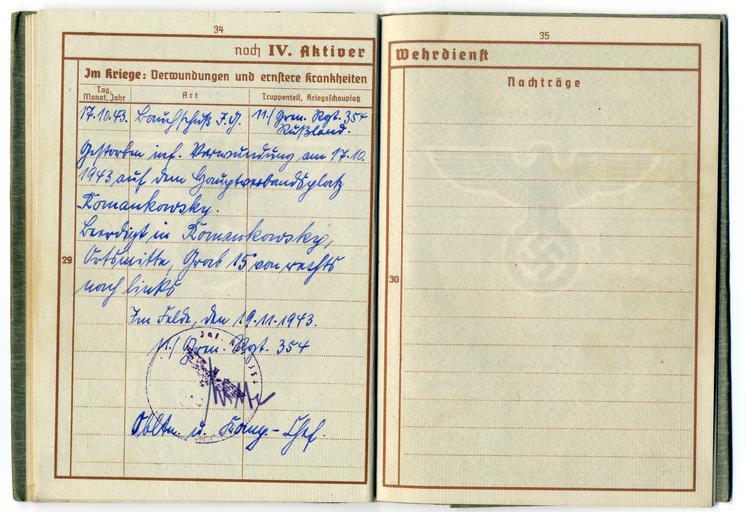 34
noch IV. Aktiver
Im Kriege: Verwundungen und ernstere Krankheiten
Tag, Monat, Jahr
Art
Truppenteil, Kriegsschauplatz
17.10.43. Bauchschuß I.G. 11./Gren. Rgt. 354
Rußland.
Gestorben inf. Verwundung am 17.10.
1943, auf dem Hauptverbandsplatz
Romankowsky.
Beerdigt in Romankowsky,
Ortsmitte, Grab 15 von rechts
nach links
Im Felde, den 19.11.1943.
11./Gren. Rgt. 354
Obltn. u. Komp.-Chef.
29
35
Wehrdienst
Nachträge
30